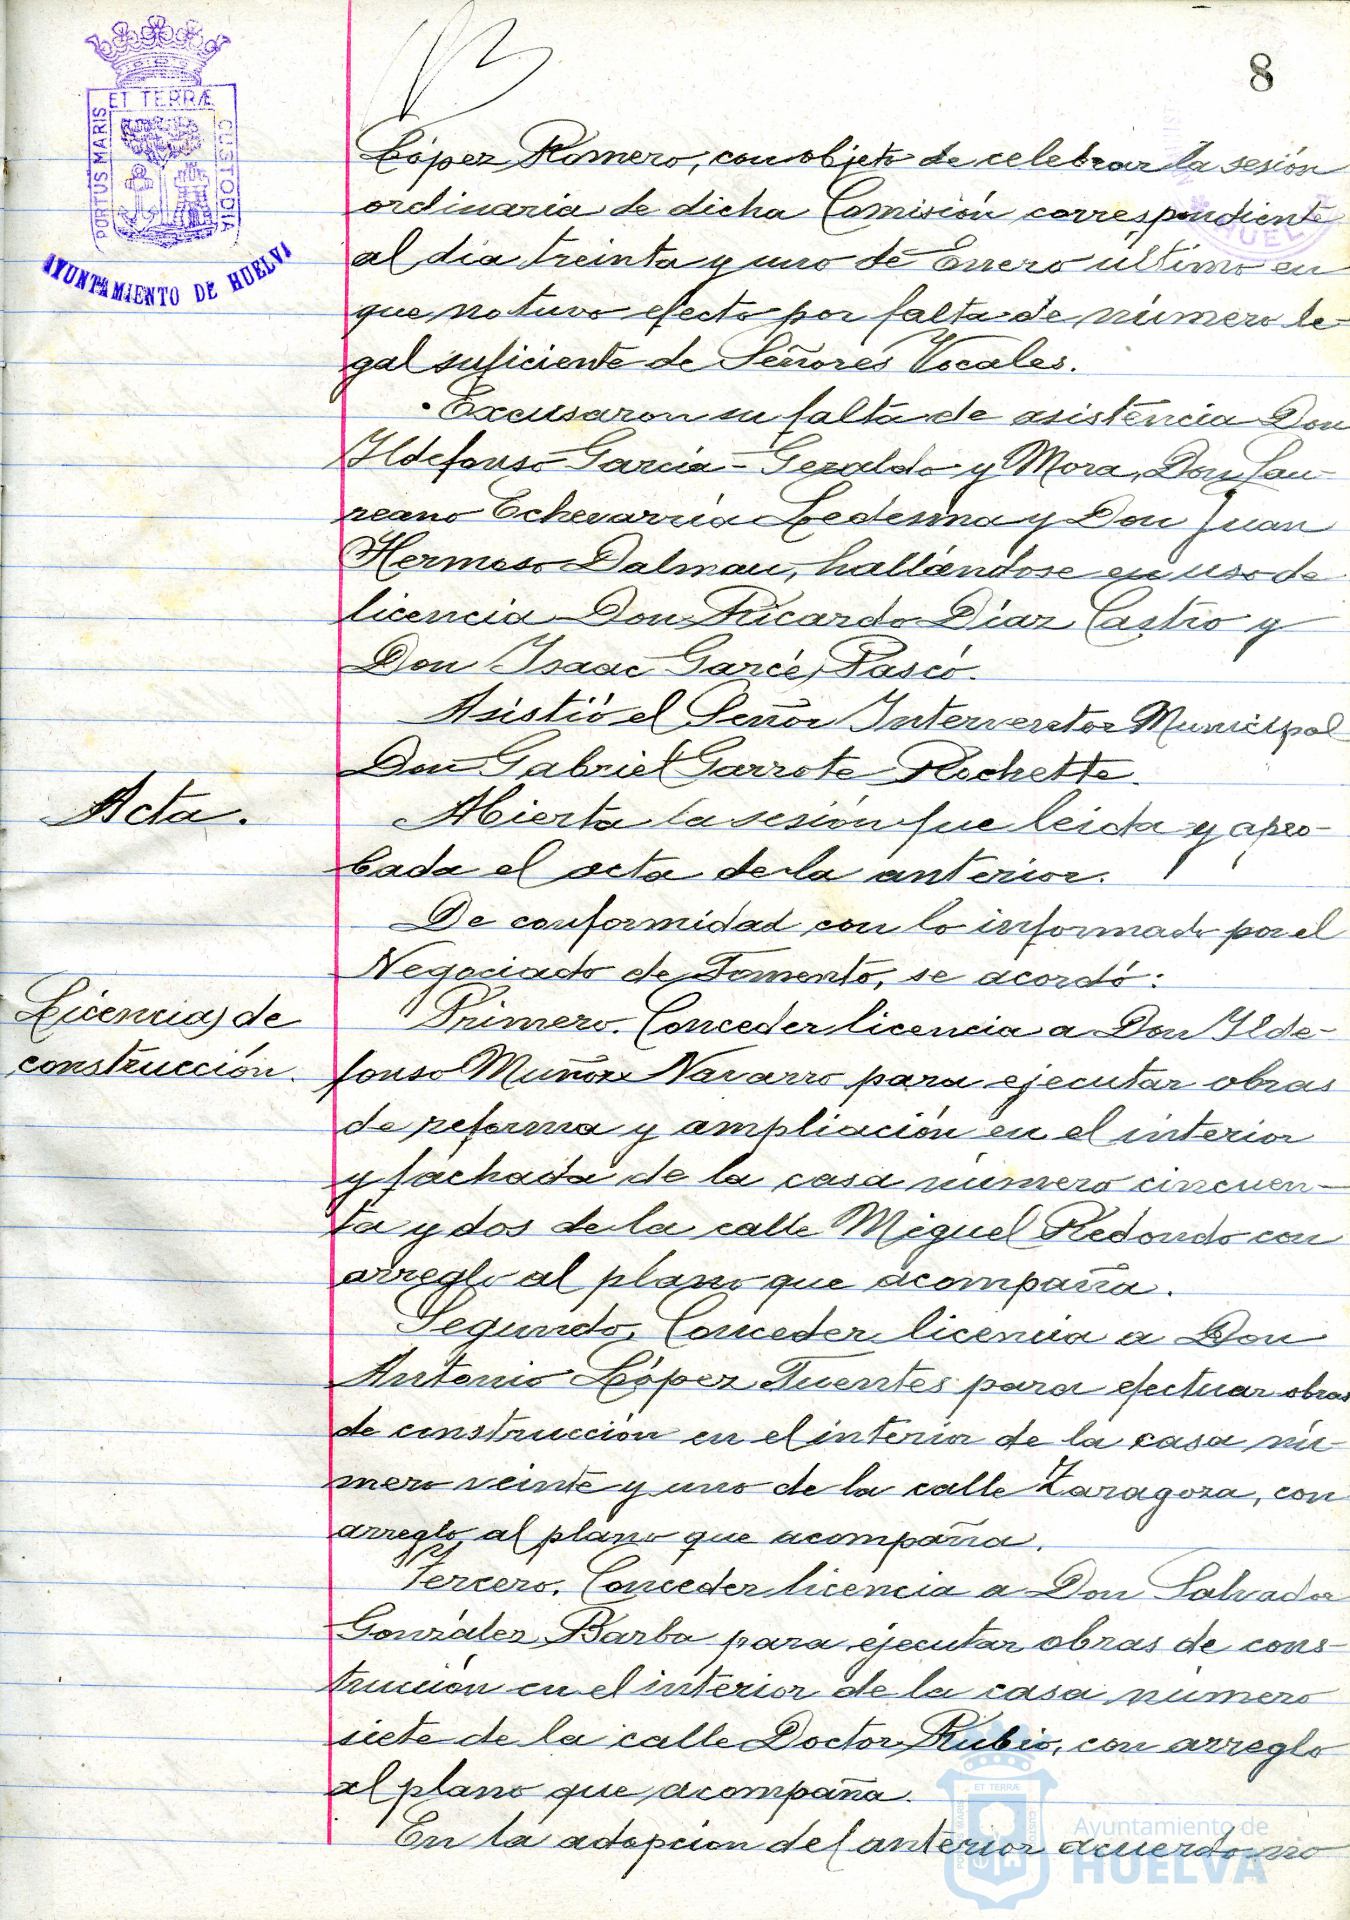 8
ET TERRÆ
PORTUS MARIS
CUSTODIA
AYUNTAMIENTO DE HUELVA
HUELVA
López Romero, con objeto de celebrar la sesión
ordinaria de dicha Comisión correspondiente
al día treinta y uno de Enero último en
que no tuvo efecto por falta de número le-
gal suficiente de Señores Vocales.
Excusaron su falta de asistencia Don
Ildefonso García-Geraldo y Mora, Don Lau-
reano Echevarría Ledesma y Don Juan
Hermoso Dalmau, hallándose en uso de
licencia Don Ricardo Díaz Castro y
Don Isaac Garcés Pascó.
Asistió el Señor Interventor Municipal
Don Gabriel Garrote Rochette.
Acta.
Abierta la sesión fue leida y apro-
bada el acta de la anterior.
De conformidad con lo informado por el
Negociado de Fomento, se acordó:
Licencias de
construcción.
Primero. Conceder licencia a Don Ilde-
fonso Muñoz Navarro para ejecutar obras
de reforma y ampliación en el interior
y fachada de la casa número cincuen-
ta y dos de la calle Miguel Redondo con
arreglo al plano que acompaña.
Segundo. Conceder licencia a Don
Antonio López Fuentes para efectuar obras
de construcción en el interior de la casa nú-
mero veinte y uno de la calle Zaragoza, con
arreglo al plano que acompaña.
Tercero. Conceder licencia a Don Salvador
González Barba para ejecutar obras de cons-
trucción en el interior de la casa número
siete de la calle Doctor Rubio, con arreglo
al plano que acompaña.
En la adopcion del anterior acuerdo no
ET TERRÆ
Ayuntamiento de
HUELVA